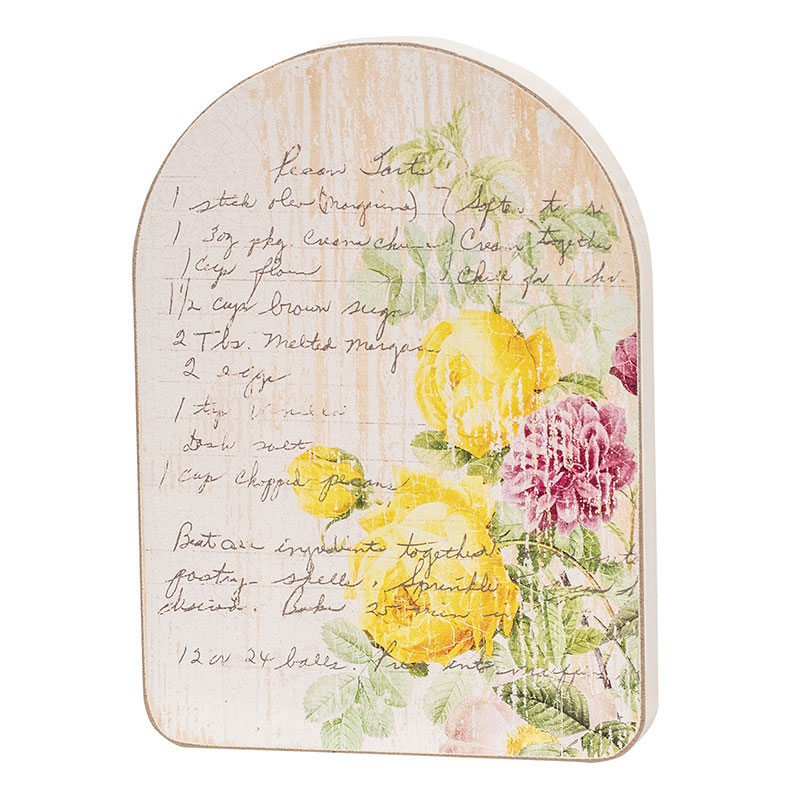 Pecan Tarts
1 stick oleo (Margarine) } Soften to
1 3oz pkg. Cream cheese } Cream together
1 cup flour } Chill for 1 hr.
1 1/2 cup brown sugar
2 Tbs. Melted Margarine
2 eggs
1 tsp Vanilla
dash salt
1 cup chopped pecans
Beat all ingredients together.
pastry shells. Sprinkle
desired. Bake 25 min
12 or 24 balls. Press into muffin